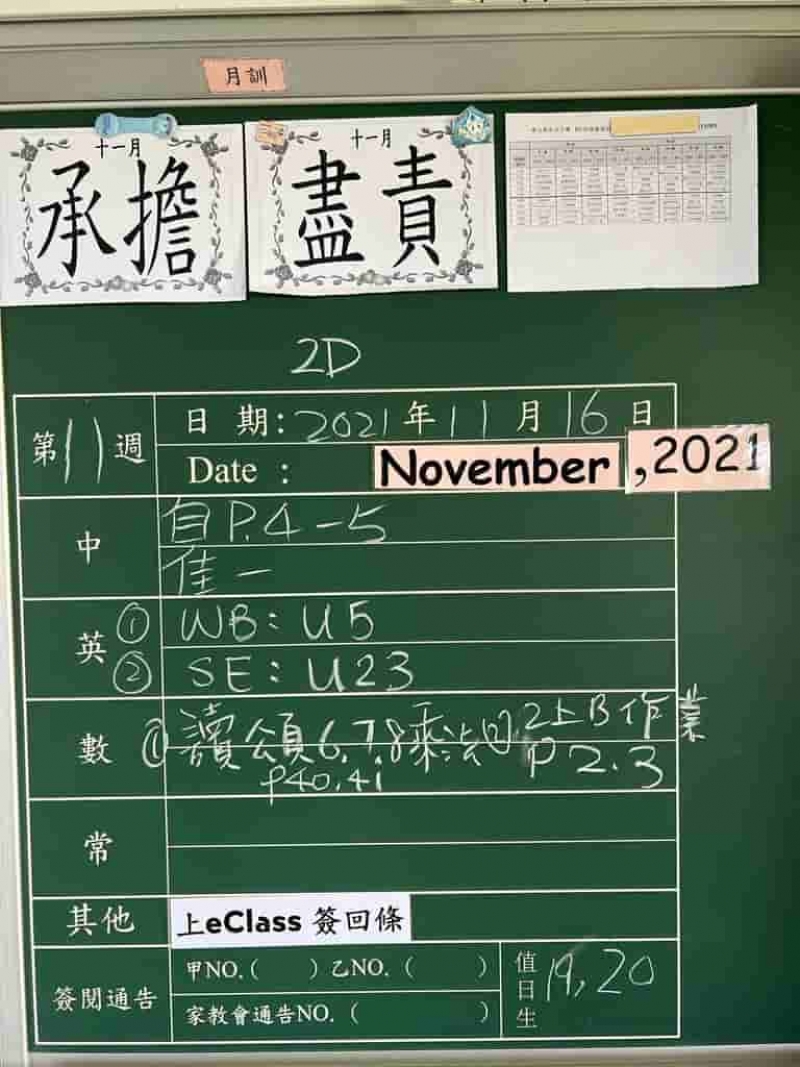 月訓
十一月
承擔
十一月
盡責
2D
第11週
日 期：2021年11月16日
Date： November ,2021
中
自P.4-5
佳一
英
① WB：U5
② SE：U23
數
① 讀頌6.7.8乘法 2上B作業
P40.41 P2.3
常
其他
上eClass 簽回條
簽閱通告
甲NO.( ) 乙NO.( )
家教會通告NO.( )
值日生 19,20